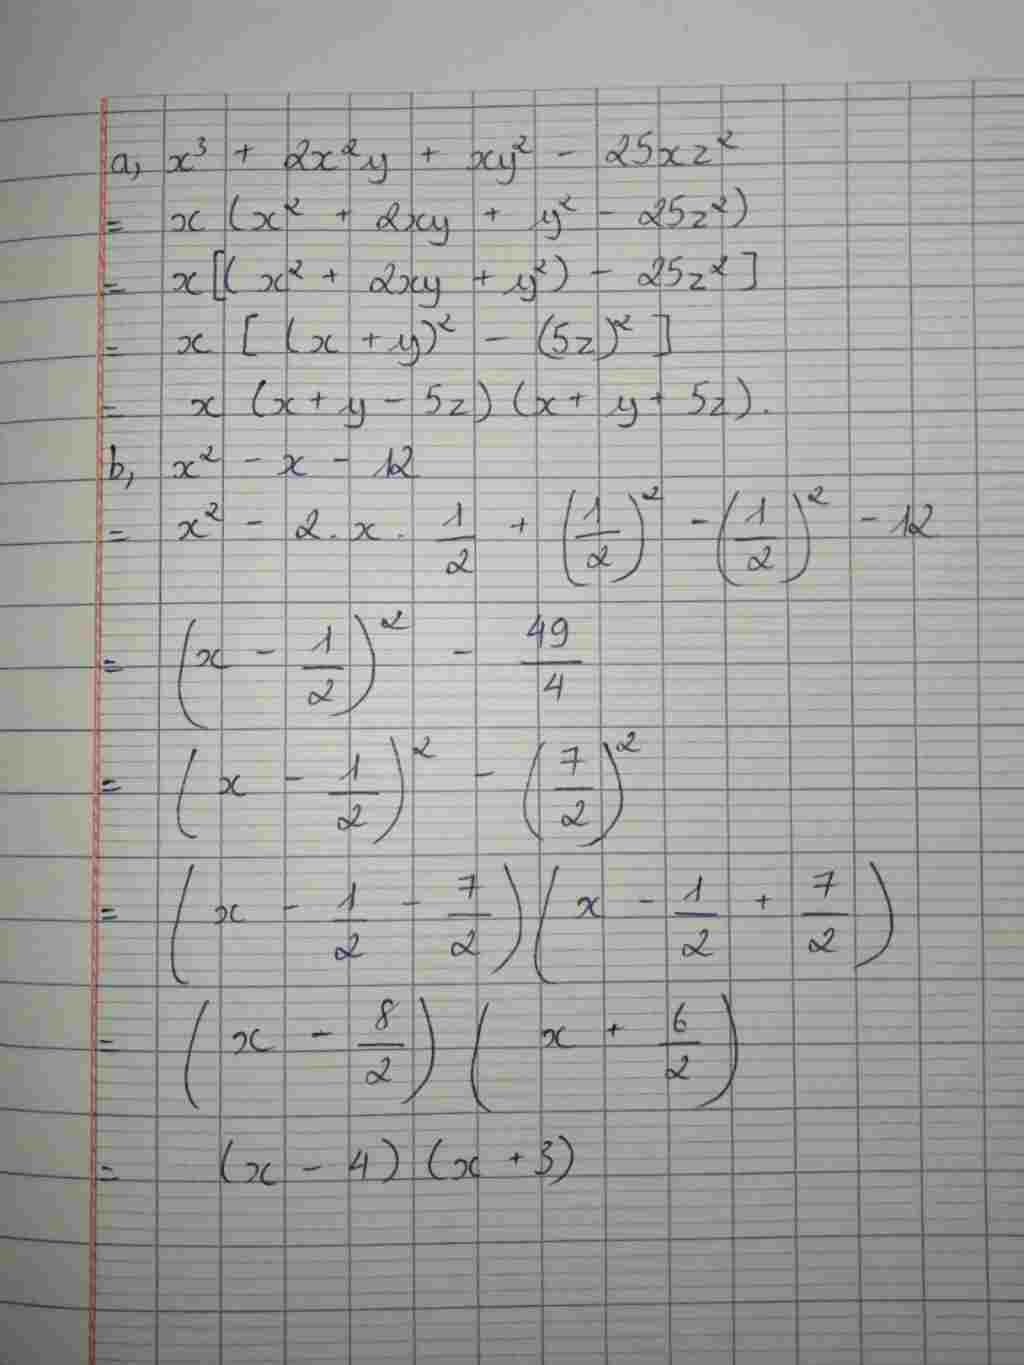 a, x³ + 2x²y + xy² - 25xz²
= x (x² + 2xy + y² - 25z²)
= x[(x² + 2xy + y²) - 25z²]
= x [(x + y)² - (5z)²]
= x (x + y - 5z) (x + y + 5z).
b, x² - x - 12
= x² - 2. x. 1/2 + (1/2)² - (1/2)² - 12
= (x - 1/2)² - 49/4
= (x - 1/2)² - (7/2)²
= (x - 1/2 - 7/2) (x - 1/2 + 7/2)
= (x - 8/2) (x + 6/2)
= (x - 4) (x + 3)